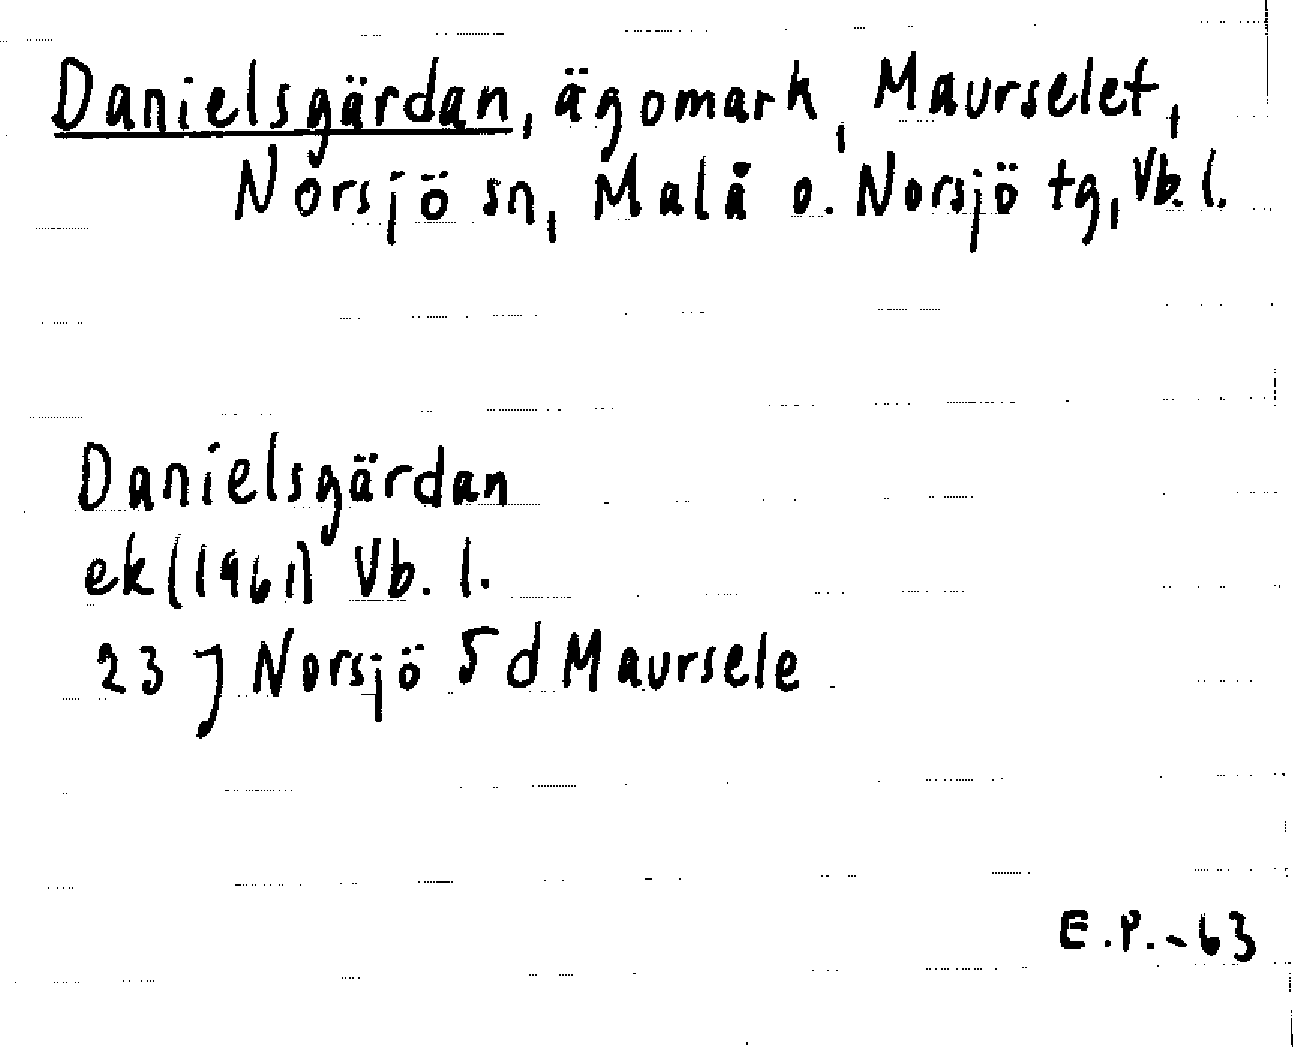 Danielsgärdan, ägomark, Maurselet,
Norsjö sn, Malå o. Norsjö tg, Vb. l.
Danielsgärdan
ek (1961) Vb. l.
23 J Norsjö 5 d Maursele
E.P.-63